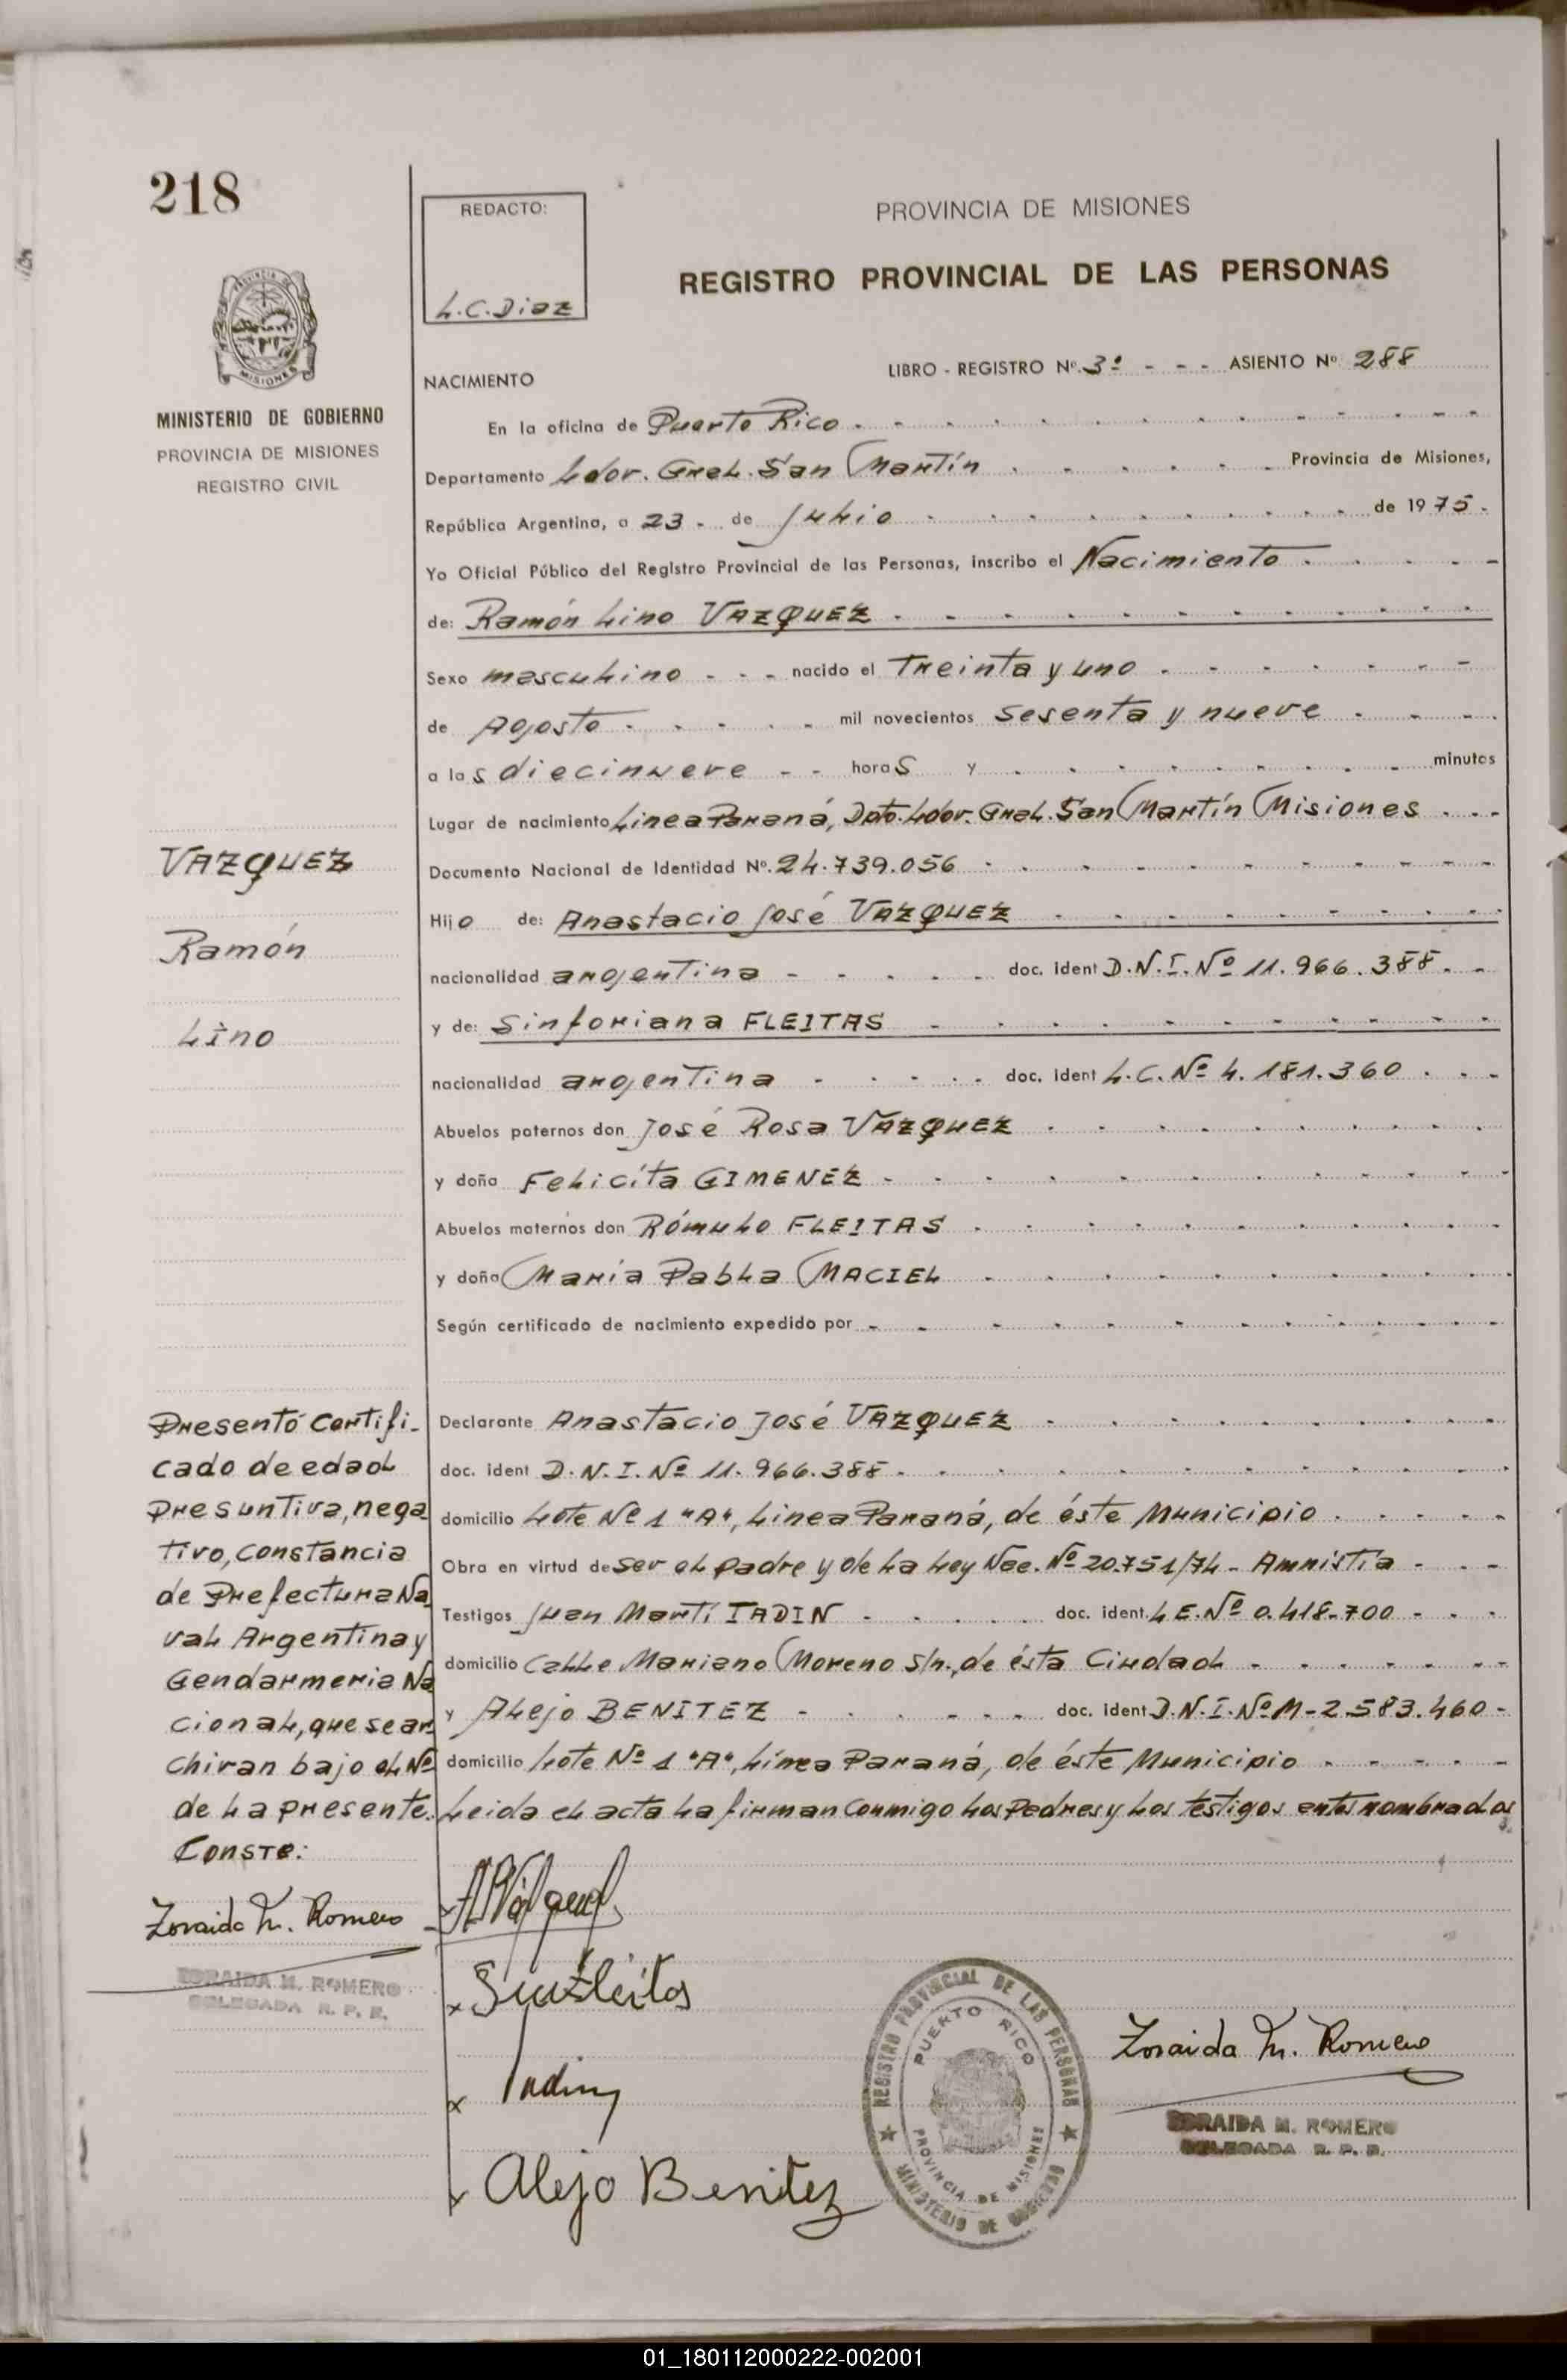 218
REDACTO:
L.C. Diaz
PROVINCIA DE MISIONES
REGISTRO PROVINCIAL DE LAS PERSONAS
PROVINCIA
MISIONES
MINISTERIO DE GOBIERNO
PROVINCIA DE MISIONES
REGISTRO CIVIL
LIBRO - REGISTRO Nº. 3º - - - ASIENTO Nº 288
NACIMIENTO
En la oficina de Puerto Rico
Departamento Ldor. Gral. San Martín Provincia de Misiones,
República Argentina, a 23 de Julio de 1975.
Yo Oficial Público del Registro Provincial de las Personas, inscribo el Nacimiento
de: Ramón Lino VAZQUEZ
Sexo masculino - - - nacido el Treinta y uno
de Agosto mil novecientos sesenta y nueve
a las diecinueve - - horas y minutos
Lugar de nacimiento Linea Paraná, Dpto. Ldor. Gral. San Martín Misiones
Documento Nacional de Identidad Nº. 24.739.056
Hijo de: Anastacio José VAZQUEZ
nacionalidad argentina doc. ident D.N.I. Nº 11.966.388.
y de: Sinforiana FLEITAS
nacionalidad argentina doc. ident L.C. Nº 4.181.360
Abuelos paternos don José Rosa VAZQUEZ
y doña Felicíta GIMENEZ
Abuelos maternos don Rómulo FLEITAS
y doña María Pabla MACIEL
Según certificado de nacimiento expedido por
Declarante Anastacio José VAZQUEZ
doc. ident D.N.I. Nº 11.966.388
domicilio Lote Nº 1 "A", Linea Paraná, de éste Municipio
Obra en virtud de ser el padre y de la Ley Nac. Nº 20.751/74 - Amnistía
Testigos Juan Martí TADIN doc. ident. L.E. Nº 0.418.700
domicilio Calle Mariano Moreno s/n., de ésta Ciudad
y Alejo BENITEZ doc. ident D.N.I. Nº M-2.583.460
domicilio Lote Nº 1 "A", Línea Paraná, de éste Municipio
Leida el acta la firman conmigo los Padres y los testigos antes nombrados.
VAZQUEZ
Ramón
Lino
Presentó certifi-
cado de edad
presuntiva, nega
tivo, constancia
de Prefectura Na
val Argentina y
Gendarmeria Na
cional, que se ar
chivan bajo el Nº
de la presente.
Conste:
Zoraida M. Romero
ZORAIDA M. ROMERO
DELEGADA R. P. P.
Tadin
Alejo Benitez
REGISTRO PROVINCIAL DE LAS PERSONAS
PUERTO RICO
PROVINCIA DE MISIONES
MINISTERIO DE GOBIERNO
Zoraida M. Romero
ZORAIDA M. ROMERO
DELEGADA R. P. P.
01_180112000222-002001